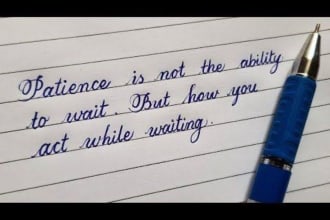 Patience is not the ability
to wait. But how you
act while waiting.